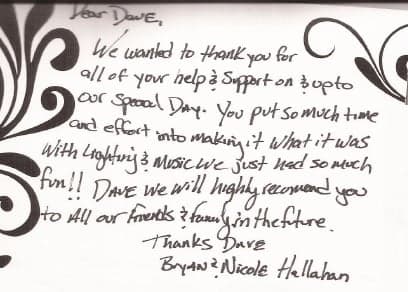 Dear Dave,
We wanted to thank you for
all of your help & Support on & upto
our Special Day. You put so much time
and effort into making it what it was
With Lighting & Music we just had so much
fun!! Dave we will highly recomend you
to All our friends & family in the future.
Thanks Dave
Bryan & Nicole Hallahan